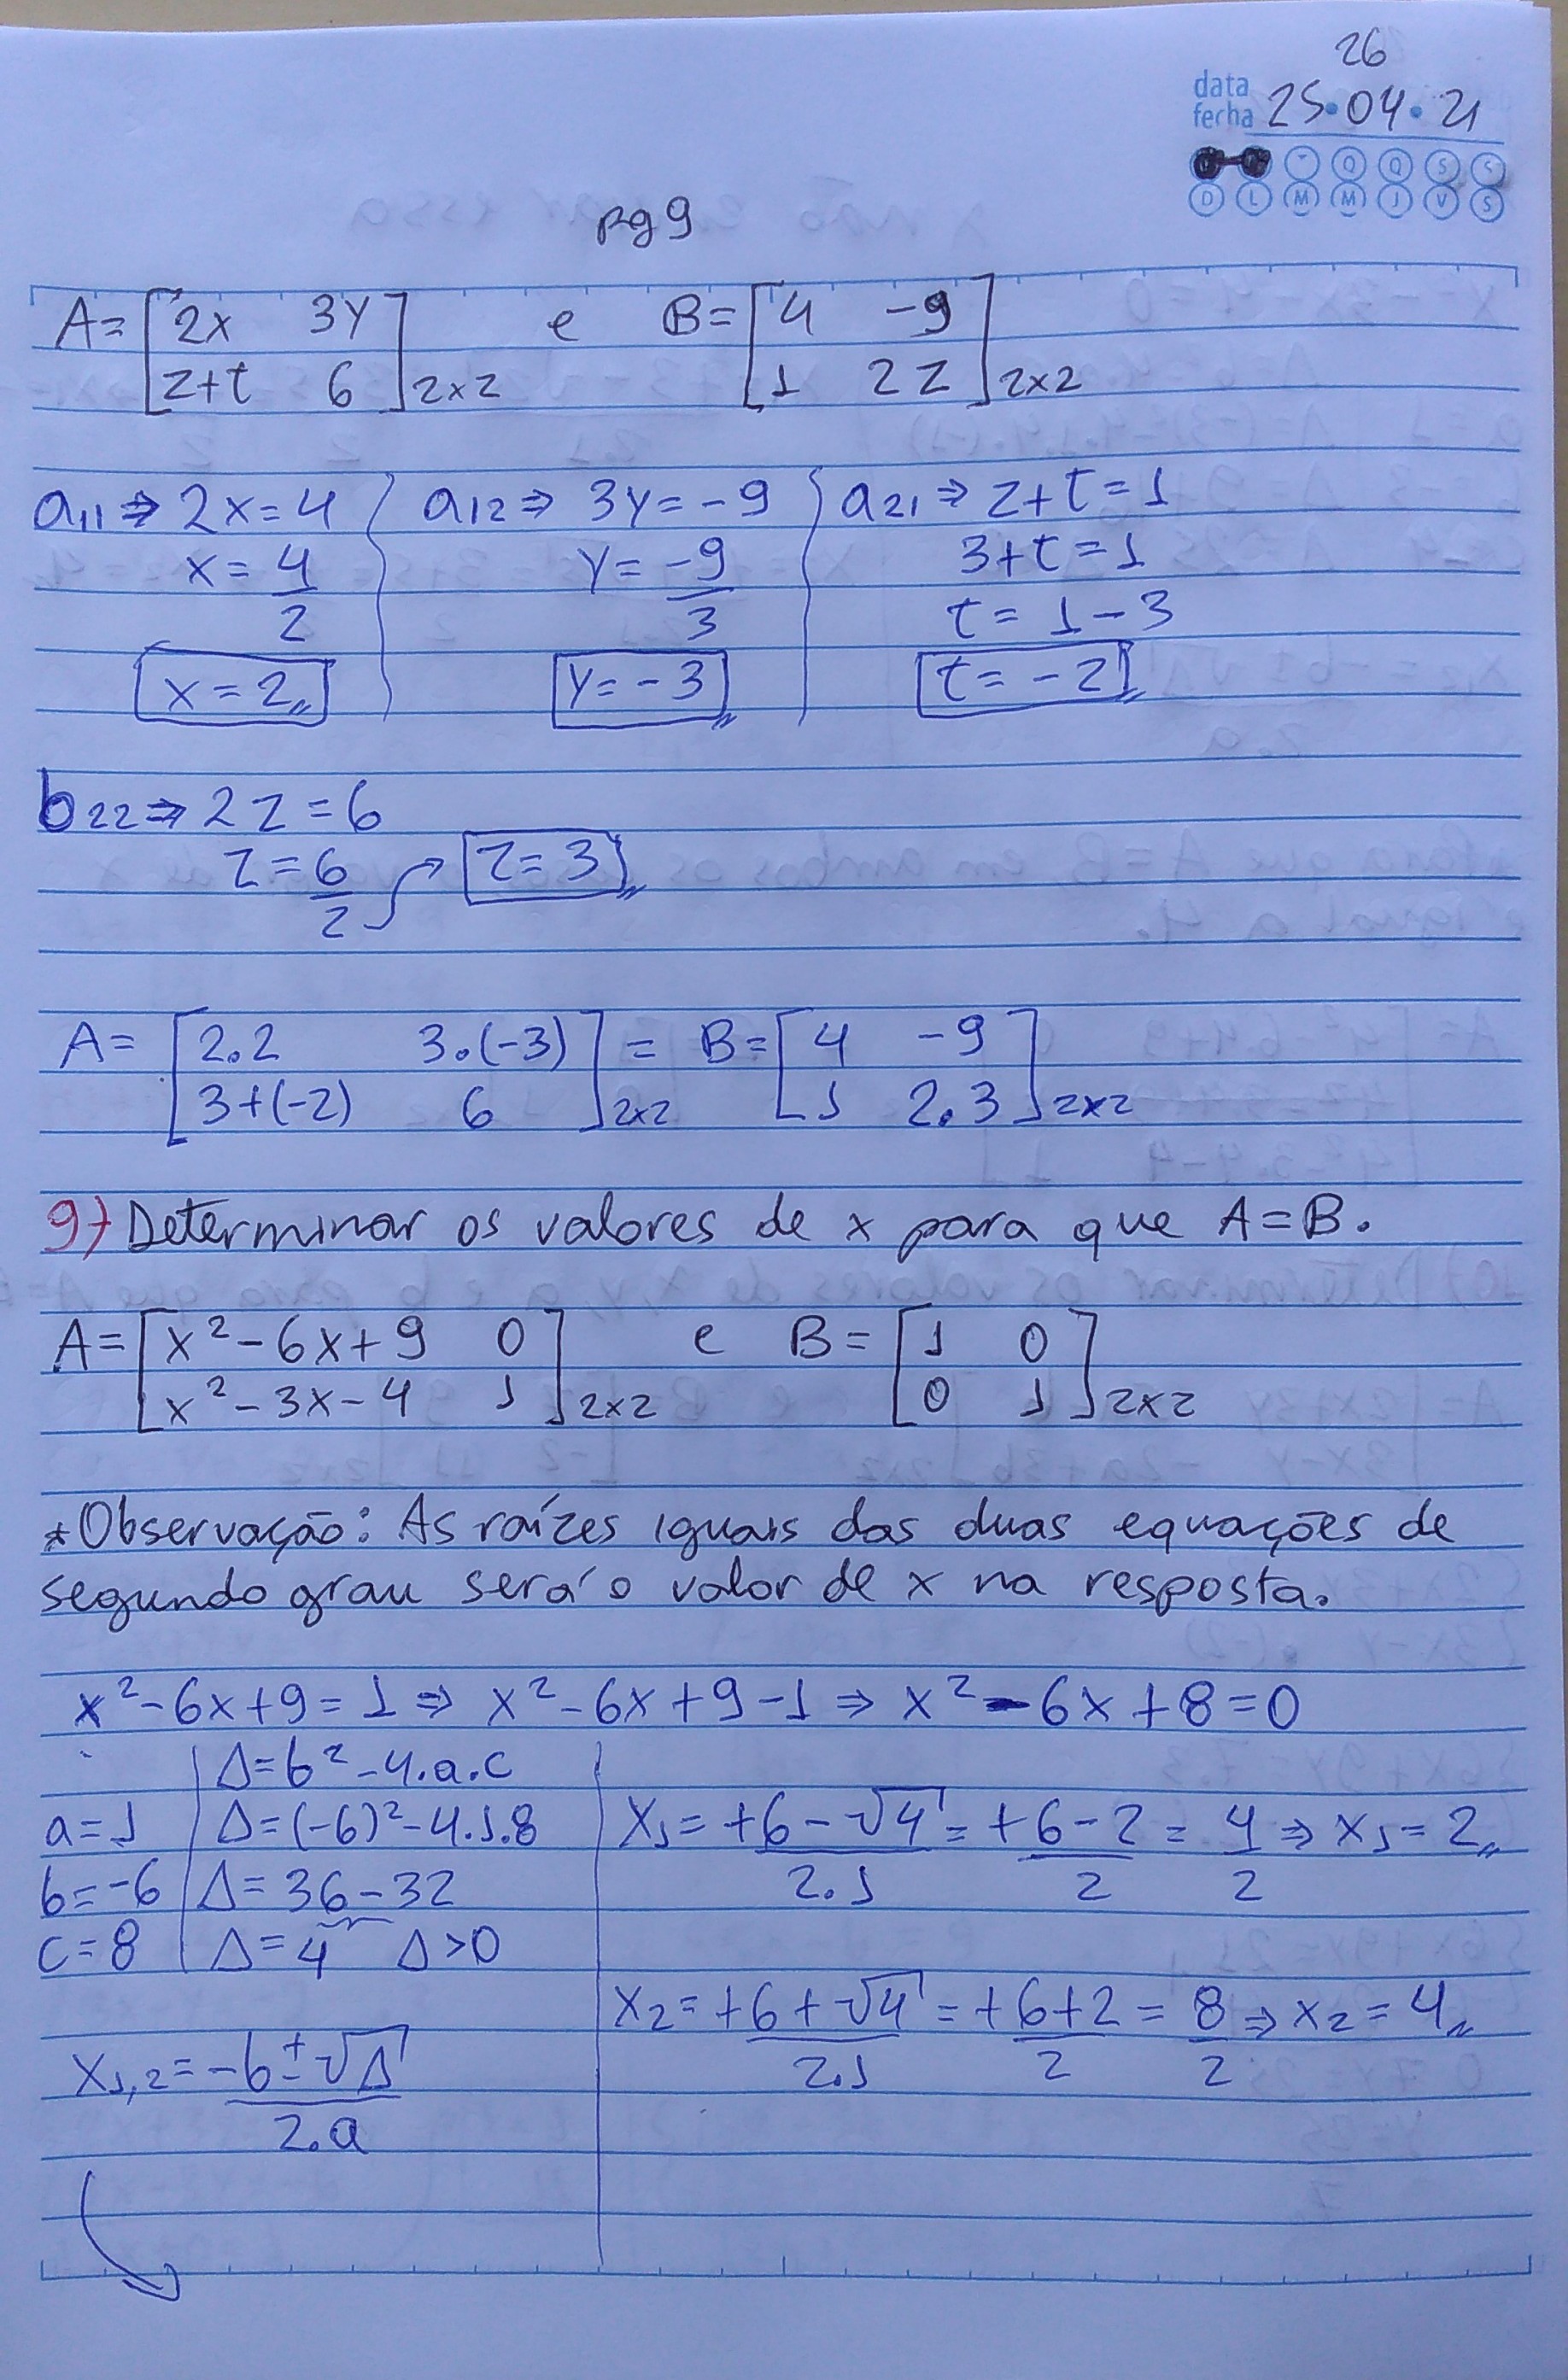 26
data
fecha 25.04.21
Q Q S S
D L M M J V S
pg 9
A = [2x 3y
z+t 6] 2x2 e B = [4 -9
1 2z] 2x2
a11 ⇒ 2x = 4 a12 ⇒ 3y = -9 a21 ⇒ z + t = 1
x = 4/2 y = -9/3 3 + t = 1
t = 1 - 3
x = 2,, y = -3,, t = -2,,
b22 ⇒ 2z = 6
z = 6/2 → z = 3,,
A = [2.2 3.(-3)
3+(-2) 6] 2x2 = B = [4 -9
1 2.3] 2x2
9) Determinar os valores de x para que A = B.
A = [x² - 6x + 9 0
x² - 3x - 4 1] 2x2 e B = [1 0
0 1] 2x2
* Observação: As raízes iguais das duas equações de
segundo grau será o valor de x na resposta.
x² - 6x + 9 = 1 ⇒ x² - 6x + 9 - 1 ⇒ x² - 6x + 8 = 0
Δ = b² - 4.a.c
a = 1 Δ = (-6)² - 4.1.8
b = -6 Δ = 36 - 32
c = 8 Δ = 4 Δ > 0
x1,2 = -b ± √Δ / 2.a
x1 = +6 - √4 / 2.1 = +6 - 2 / 2 = 4/2 ⇒ x1 = 2,,
x2 = +6 + √4 / 2.1 = +6 + 2 / 2 = 8/2 ⇒ x2 = 4,,